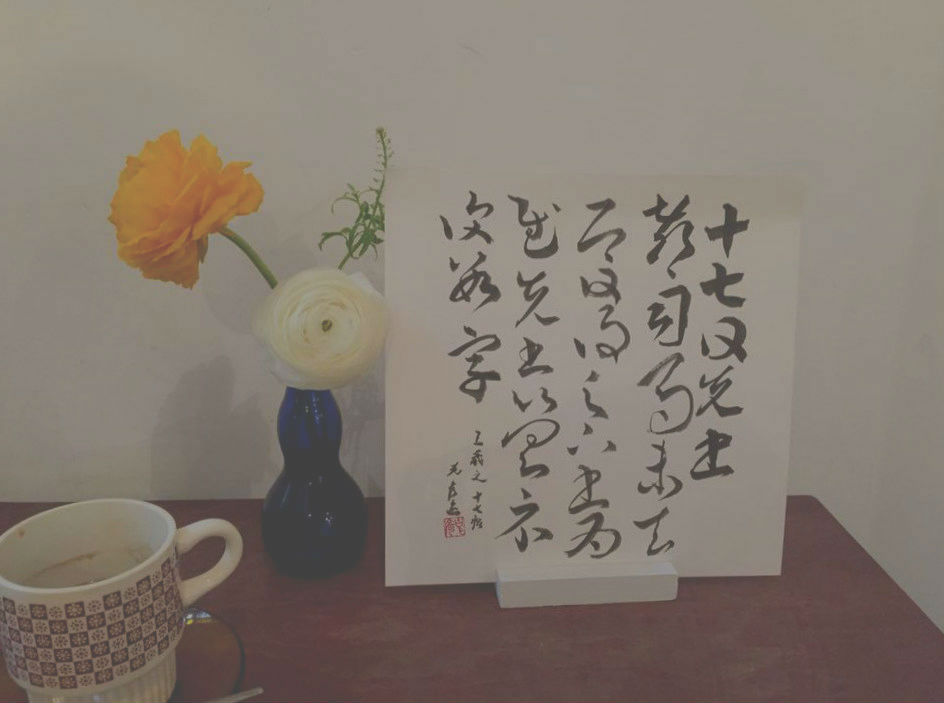 十七日先書
郗司馬未去
即日得足下書為
慰先書以具示
復數字
王羲之 十七帖